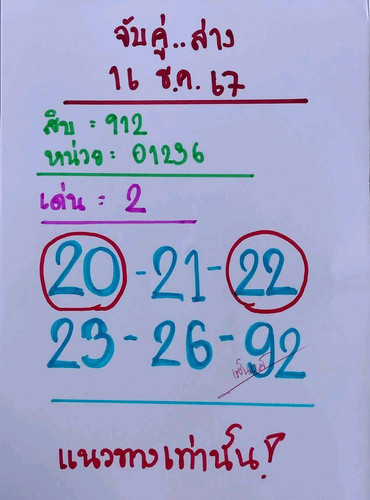 จับคู่..ล่าง
16 ธ.ค. 67
สิบ = 912
หน่วย = 01236
เด่น = 2
20 - 21 - 22
23 - 26 - 92
แนวทางเท่านั้น!